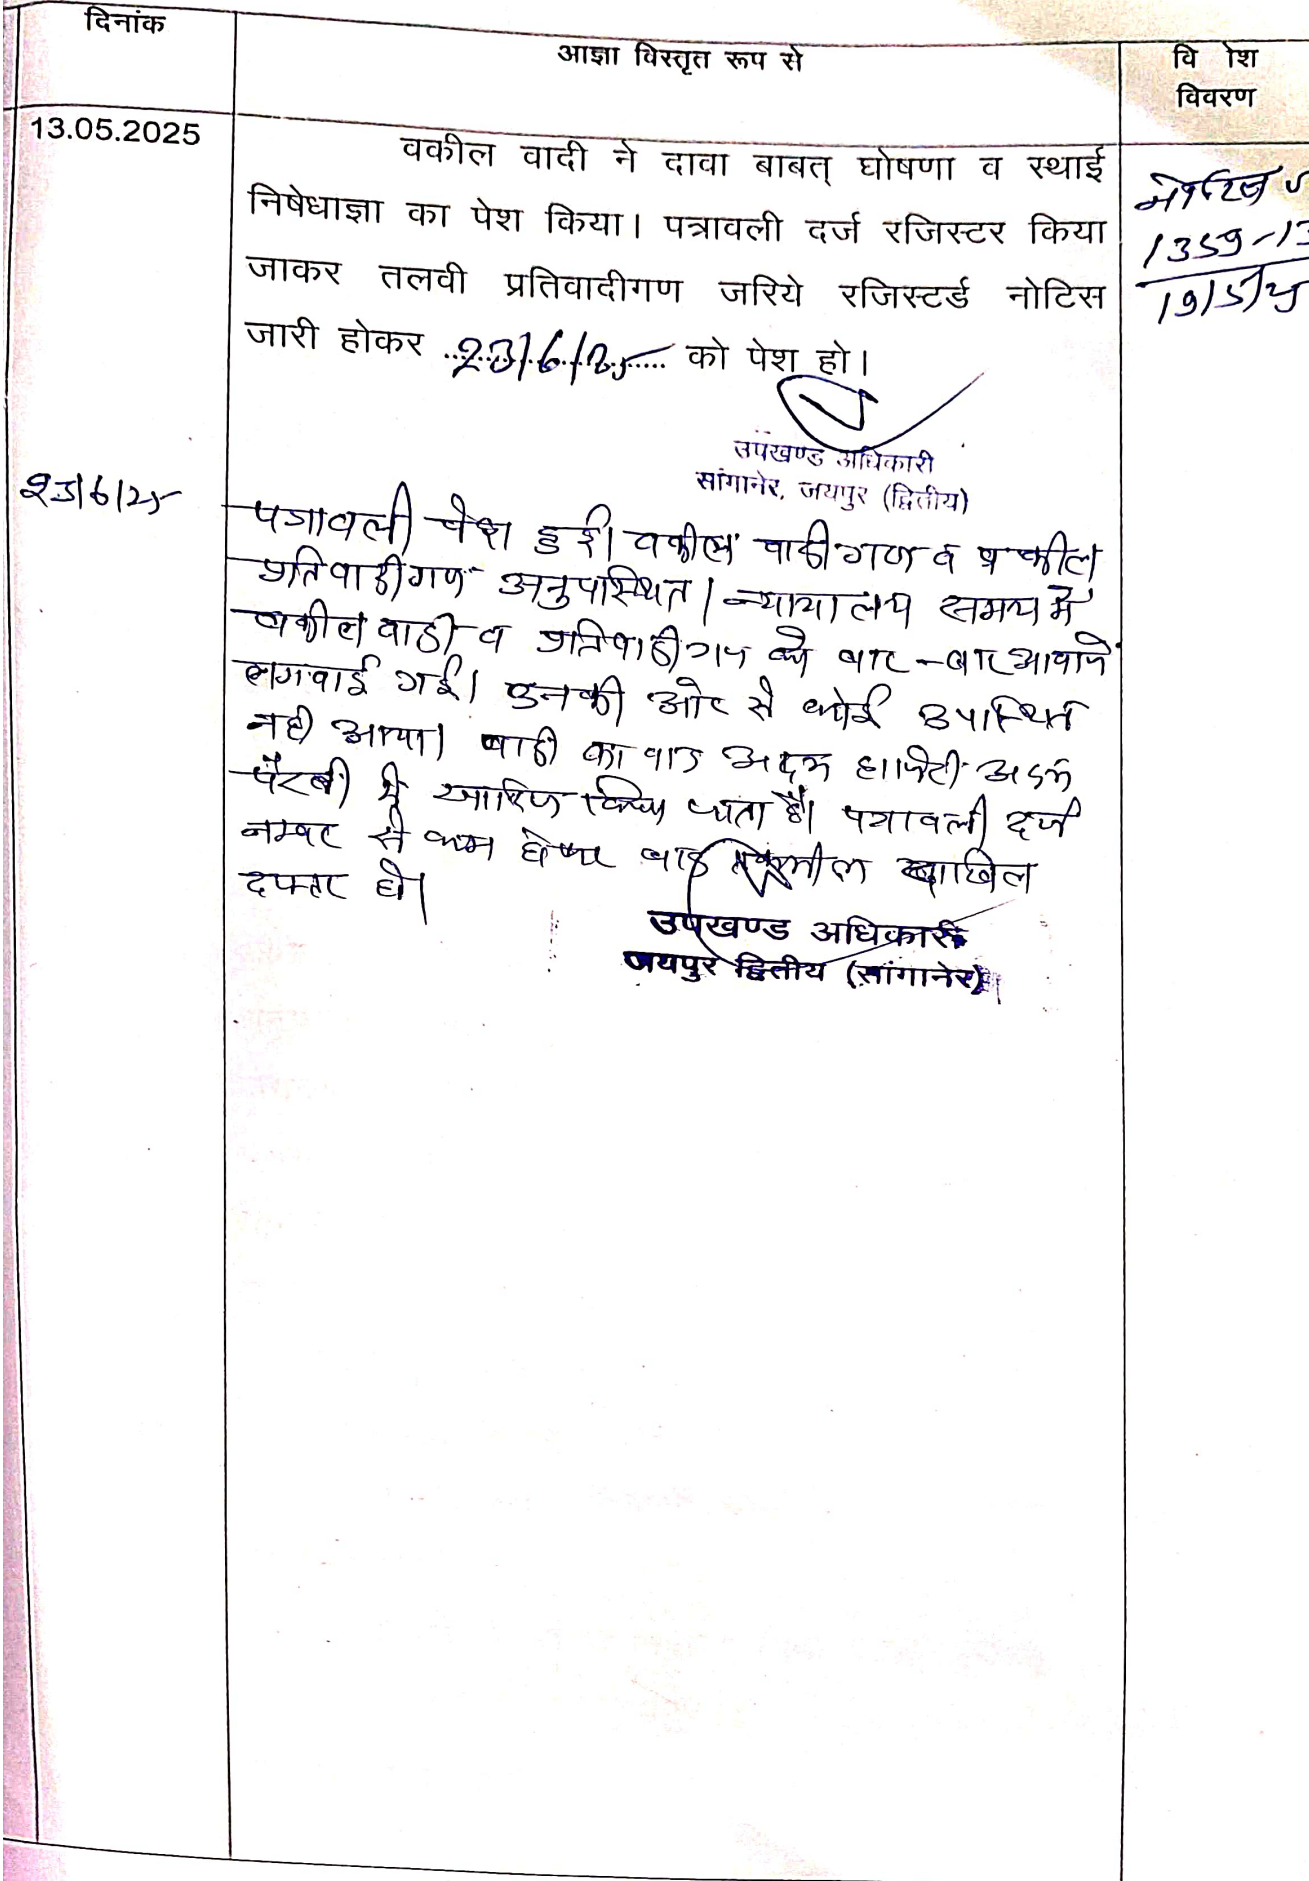 दिनांक
आज्ञा विस्तृत रूप से
वि ोश
विवरण
13.05.2025
वकील वादी ने दावा बाबत् घोषणा व स्थाई
निषेधाज्ञा का पेश किया। पत्रावली दर्ज रजिस्टर किया
जाकर तलवी प्रतिवादीगण जरिये रजिस्टर्ड नोटिस
जारी होकर 23/6/25 को पेश हो।
नोटिस
1359-13
19/5/25
उपखण्ड अधिकारी
सांगानेर, जयपुर (द्वितीय)
23/6/25
पत्रावली पेश हुई। वकील वादीगण व वकील
प्रतिवादीगण अनुपस्थित। न्यायालय समय में
वकील वादी व प्रतिवादीगण को बार-बार आवाजे
लगवाई गई। उनकी ओर से कोई उपस्थित
नही आया। वादी का वाद अदम हाजरी अदम
पैरवी मे खारिज किया जाता है। पत्रावली दर्ज
नम्बर से कम होकर बाद तकमील दाखिल
दफ्तर हो।
उपखण्ड अधिकारी
जयपुर द्वितीय (सांगानेर)